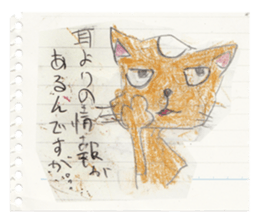 耳よりの情報が
あるんですが…